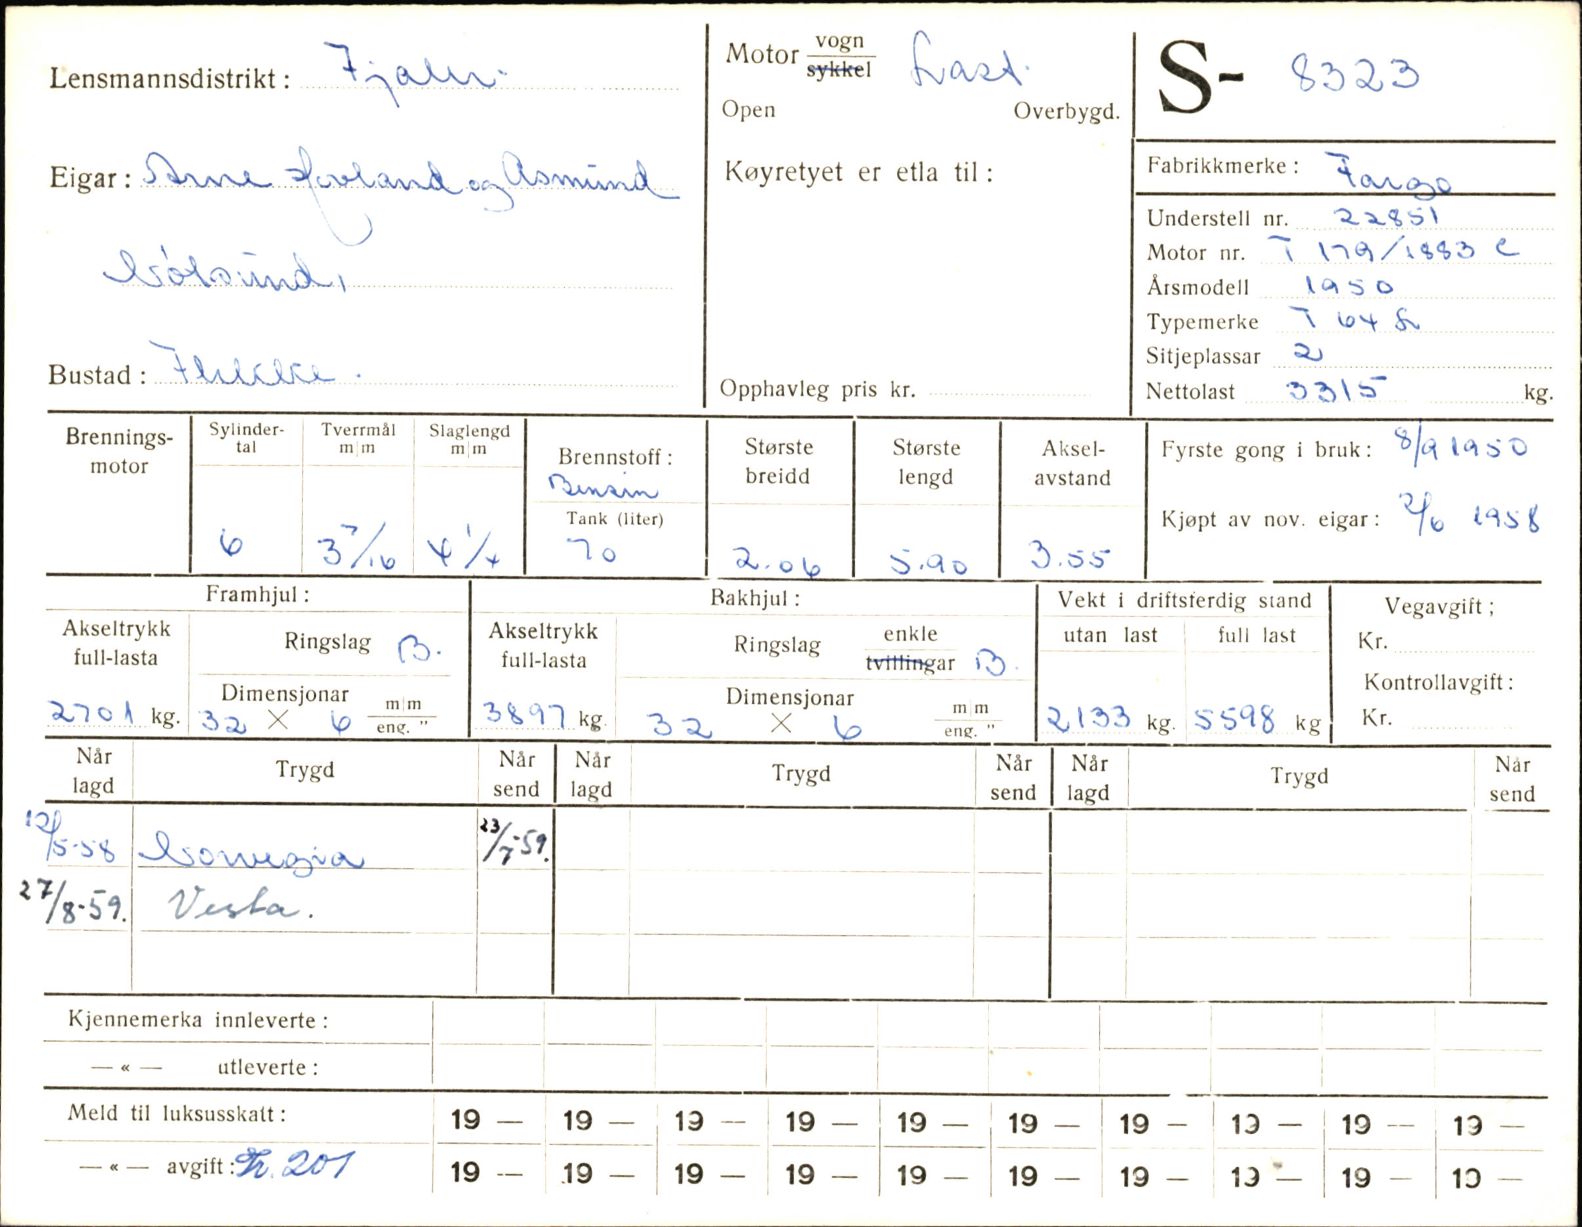 Lensmannsdistrikt: Fjaler.
Motor vogn
sykkel
Last.
Open Overbygd.
S- 8323
Eigar: Arne Hovland og Asmund
Nölsund,
Bustad: Flekke.
Køyretyet er etla til:
Opphavleg pris kr.
Fabrikkmerke: Fargo
Understell nr. 22851
Motor nr. T 179/1883 C
Årsmodell 1950
Typemerke T 64
Sitjeplassar 2
Nettolast 3315 kg.
Brennings-
motor
Sylinder-
tal
6
Tverrmål
m|m
3 7/16
Slaglengd
m|m
4 1/4
Brennstoff:
Bensin
Tank (liter)
70
Største
breidd
2.06
Største
lengd
5.90
Aksel-
avstand
3.55
Fyrste gong i bruk: 8/9 1950
Kjøpt av nov. eigar: 2/6 1958
Framhjul:
Akseltrykk
full-lasta
2701 kg.
Ringslag B.
Dimensjonar
32 × 6 m|m
eng. "
Bakhjul:
Akseltrykk
full-lasta
3897 kg
Ringslag enkle
tvillingar B.
Dimensjonar
32 × 6 m|m
eng. "
Vekt i driftsferdig stand
utan last full last
2133 kg. 5598 kg
Vegavgift;
Kr.
Kontrollavgift:
Kr.
Når
lagd Trygd Når
send Når
lagd Trygd Når
send Når
lagd Trygd Når
send
12/5-58 Norvegia 23/7-59.
27/8-59. Vesta.
Kjennemerka innleverte:
— « — utleverte:
Meld til luksusskatt: 19 — 19 — 19 — 19 — 19 — 19 — 19 — 19 — 19 — 19 —
— « — avgift: Kr. 201 19 — 19 — 19 — 19 — 19 — 19 — 19 — 19 — 19 — 19 —